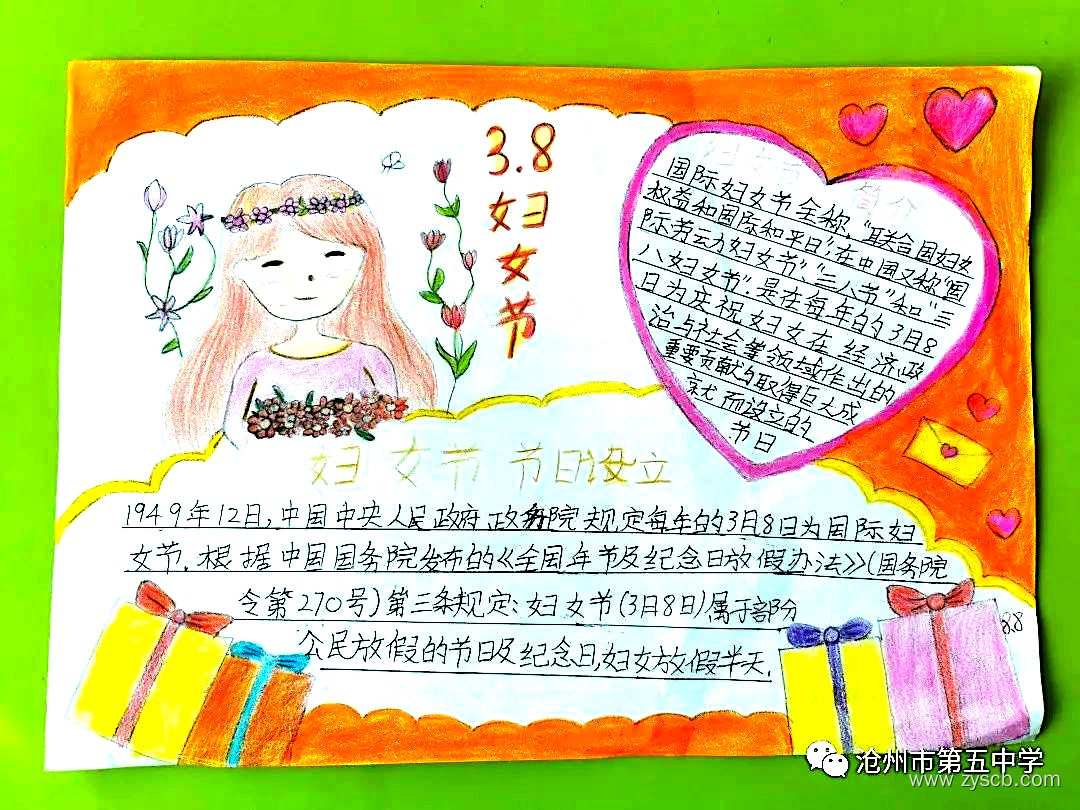 3.8
妇
女
节
妇女节
简介
国际妇女节全称、“联合国妇女
权益和国际和平日”,在中国又称“国
际劳动妇女节”、“三八节”和“三
八妇女节”是在每年的3月8
日为庆祝妇女在经济政
治与社会等领域作出的
重要贡献与取得巨大成
就而设立的
节日
妇女节 节日设立
1949年12月,中国中央人民政府、政务院规定每年的3月8日为国际妇
女节.根据中国国务院发布的《全国年节及纪念日放假办法》(国务院
令第270号)第三条规定:妇女节(3月8日)属于部分
公民放假的节日及纪念日,妇女放假半天.
8.8
沧州市第五中学
www.zyscb.com